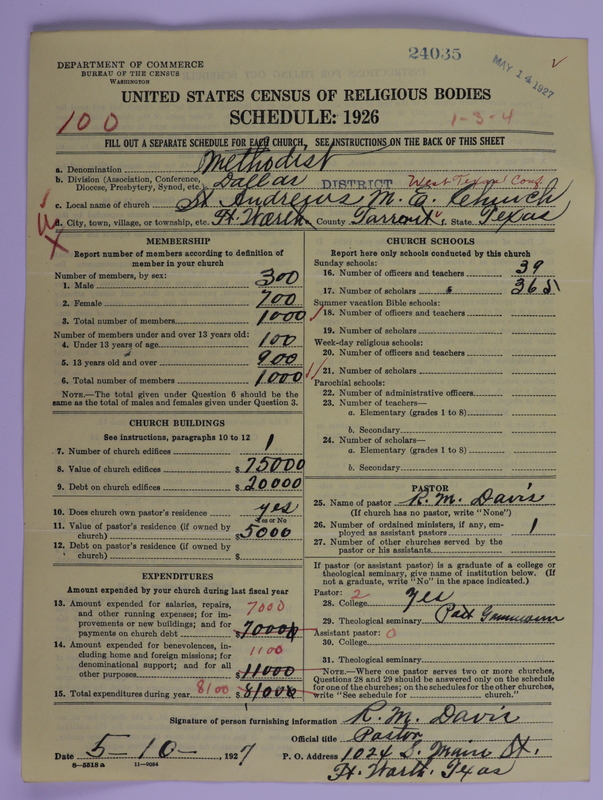 24035
MAY 14 1927
DEPARTMENT OF COMMERCE
BUREAU OF THE CENSUS
WASHINGTON
UNITED STATES CENSUS OF RELIGIOUS BODIES
SCHEDULE: 1926
100
1-3-4
FILL OUT A SEPARATE SCHEDULE FOR EACH CHURCH, SEE INSTRUCTIONS ON THE BACK OF THIS SHEET
a. Denomination Methodist
b. Division (Association, Conference, Diocese, Presbytery, Synod, etc.) Dallas DISTRICT West Texas Conf
c. Local name of church St Andrews M. E. Church
d. City, town, village, or township, etc. Ft. Worth County Tarrant f. State Texas
MEMBERSHIP
Report number of members according to definition of
member in your church
Number of members, by sex:
1. Male 300
2. Female 700
3. Total number of members 1000
Number of members under and over 13 years old:
4. Under 13 years of age 100
5. 13 years old and over 900
6. Total number of members 1000
NOTE.—The total given under Question 6 should be the
same as the total of males and females given under Question 3.
CHURCH BUILDINGS
See instructions, paragraphs 10 to 12
7. Number of church edifices 1
8. Value of church edifices $75000
9. Debt on church edifices $20000
10. Does church own pastor's residence yes
Yes or No
11. Value of pastor's residence (if owned by
church) $5000
12. Debt on pastor's residence (if owned by
church) $
EXPENDITURES
Amount expended by your church during last fiscal year
13. Amount expended for salaries, repairs,
and other running expenses; for im-
provements or new buildings; and for
payments on church debt 7000 $70000
14. Amount expended for benevolences, in-
cluding home and foreign missions; for
denominational support; and for all
other purposes 1100 $11000
15. Total expenditures during year 8100 $81000
CHURCH SCHOOLS
Report here only schools conducted by this church
Sunday schools:
16. Number of officers and teachers 39
17. Number of scholars 365
Summer vacation Bible schools:
18. Number of officers and teachers
19. Number of scholars
Week-day religious schools:
20. Number of officers and teachers
21. Number of scholars
Parochial schools:
22. Number of administrative officers
23. Number of teachers—
a. Elementary (grades 1 to 8)
b. Secondary
24. Number of scholars—
a. Elementary (grades 1 to 8)
b. Secondary
PASTOR
25. Name of pastor R. M. Davis
(If church has no pastor, write "None")
26. Number of ordained ministers, if any, em-
ployed as assistant pastors 1
27. Number of other churches served by the
pastor or his assistants
If pastor (or assistant pastor) is a graduate of a college or
theological seminary, give name of institution below. (If
not a graduate, write "No" in the space indicated.)
Pastor: 2
28. College yes
29. Theological seminary
Assistant pastor: 0
30. College
31. Theological seminary
NOTE.—Where one pastor serves two or more churches,
Questions 28 and 29 should be answered only on the schedule
for one of the churches; on the schedules for the other churches,
write "See schedule for church."
Signature of person furnishing information R. M. Davis
Official title Pastor
Date 5-10-, 1927 P. O. Address 1024 S. Main St.
8-5518a 11-9054
Ft. Worth, Texas